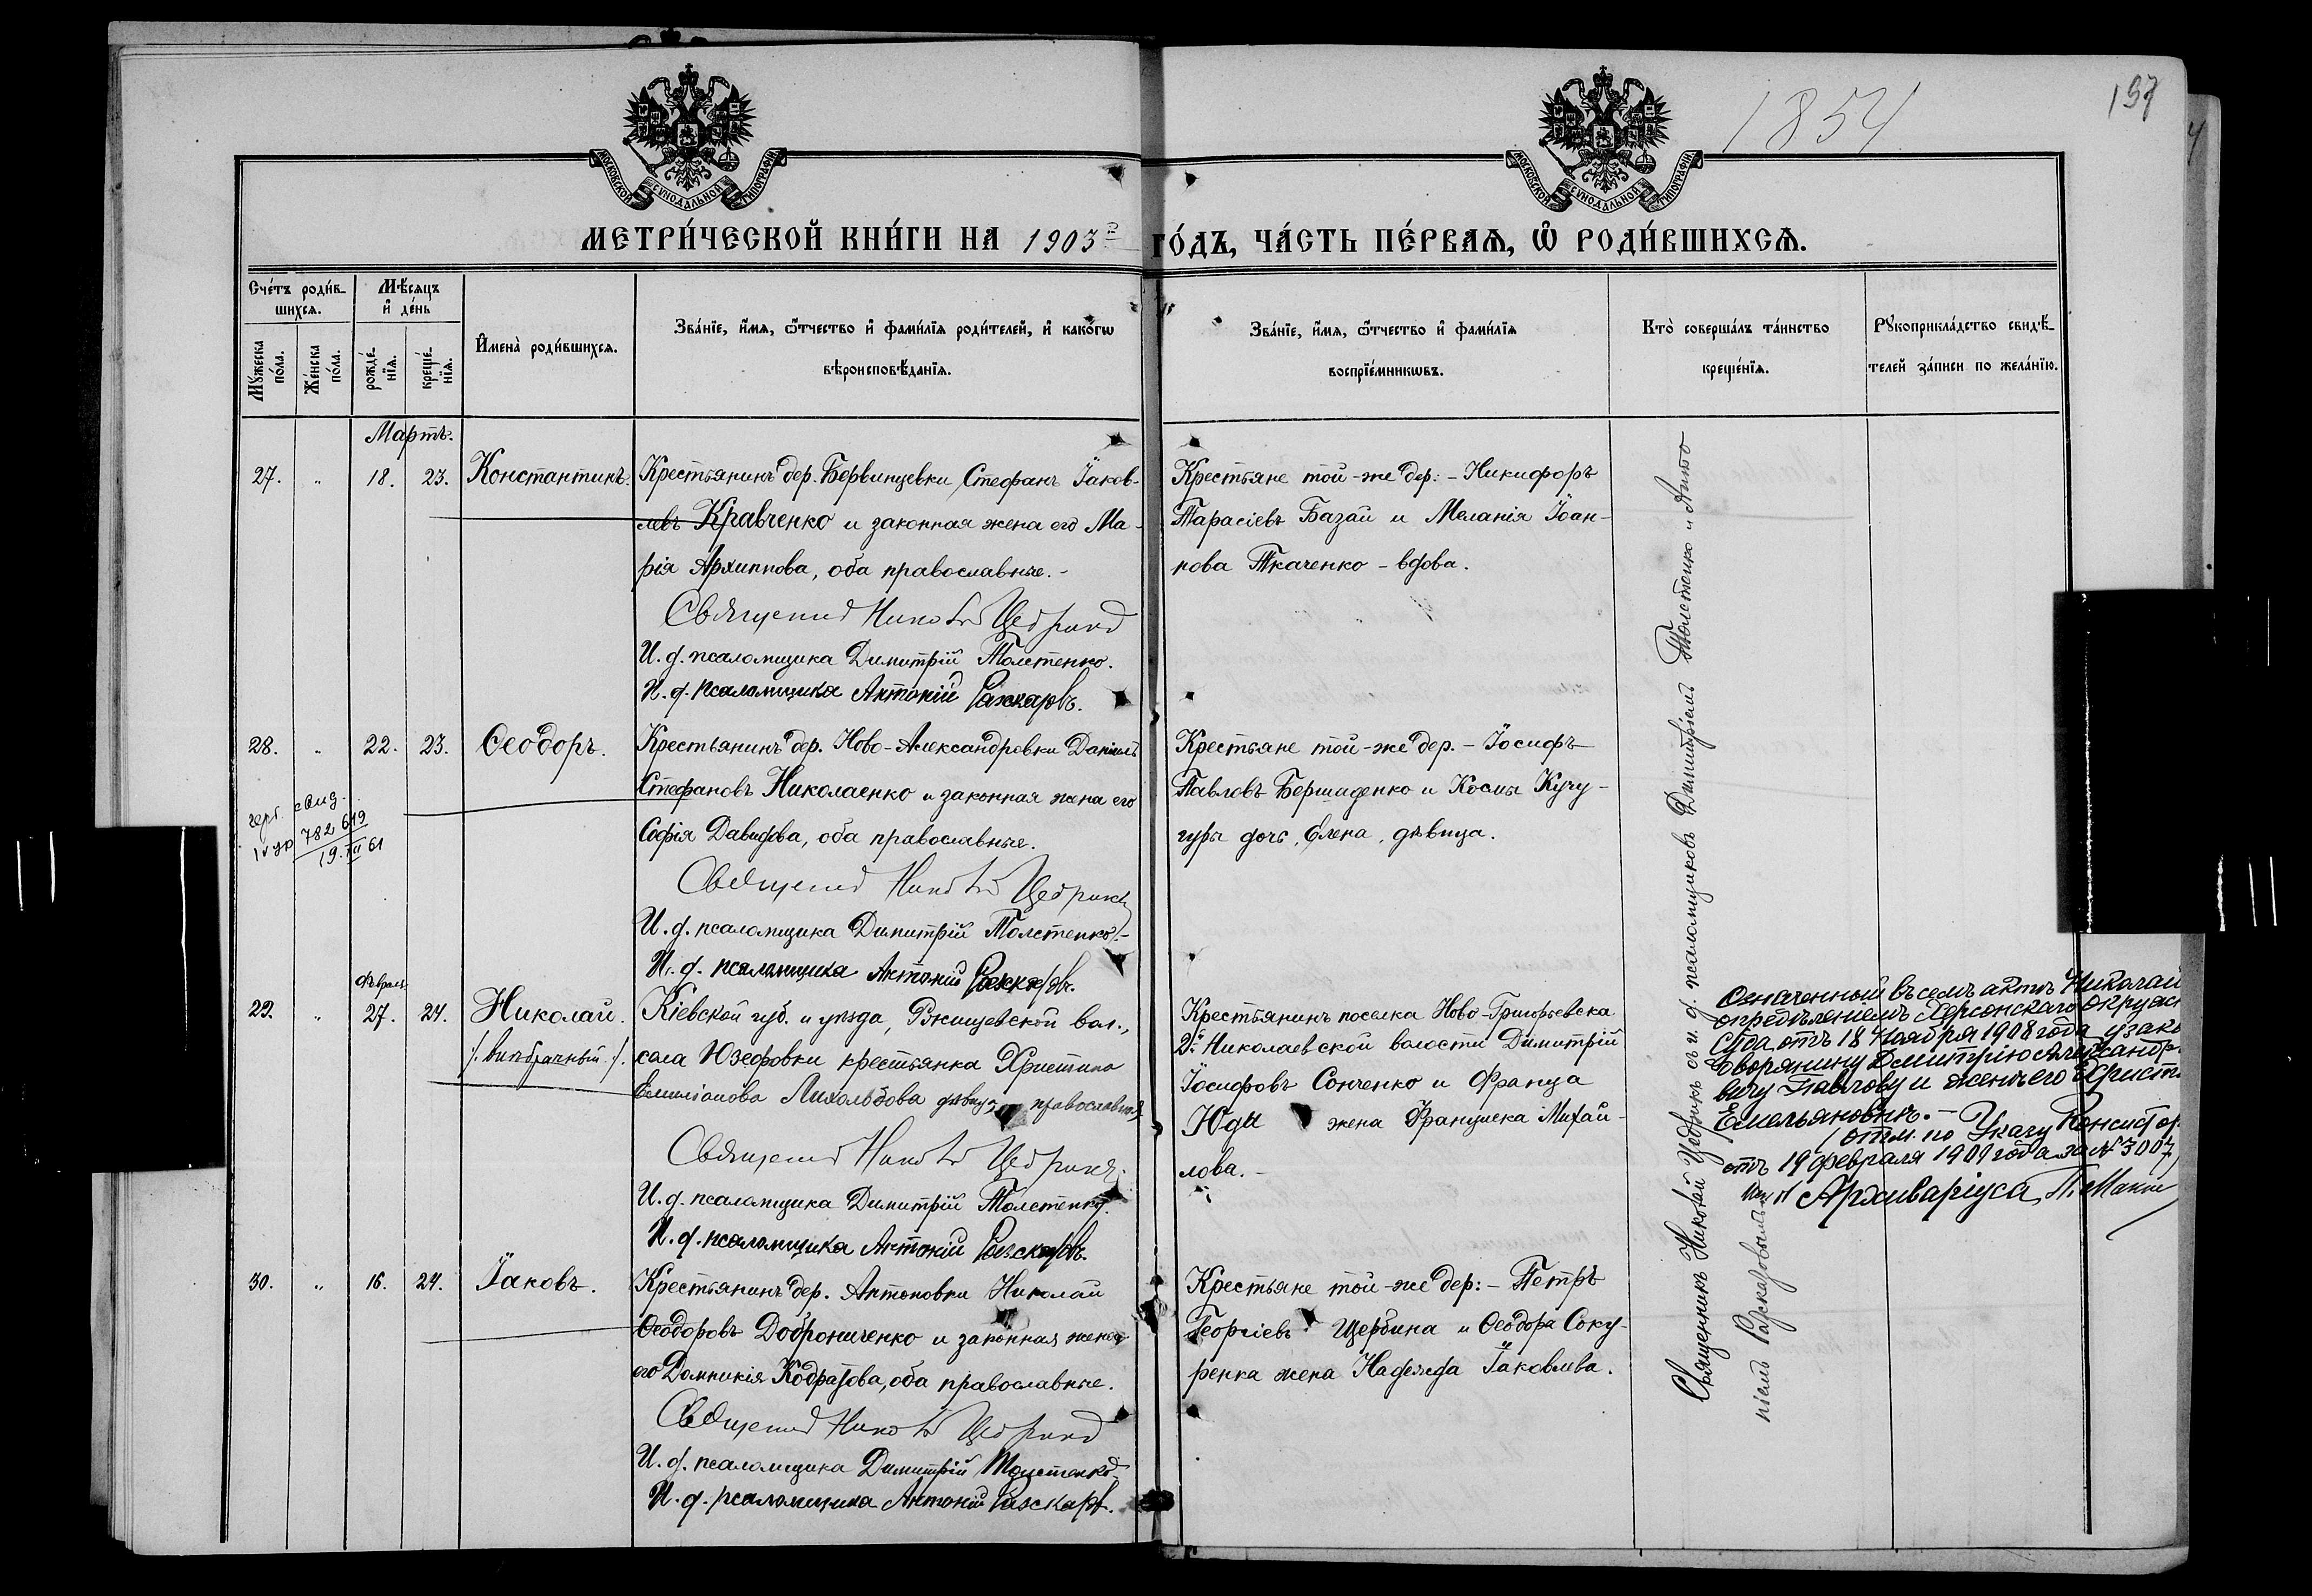 1854
197
МОСКОВСКОЙ СѴНОДАЛЬНОЙ ТИПОГРАФІИ
МОСКОВСКОЙ СѴНОДАЛЬНОЙ ТИПОГРАФІИ
МЕТРИ́ЧЕСКОЙ КНИ́ГИ НА 1903й ГО́ДЪ, ЧА́СТЬ ПЕ́РВАѦ, Ѽ РОДИ́ВШИХСѦ.
Сче́тъ роди́в-
шихсѧ.
Мꙋ́жеска по́ла.
Же́нска по́ла.
Мѣ́сѧцъ
и҆ де́нь
рожде́-
нїѧ.
креще́-
нїѧ.
И҆мена̀ роди́вшихсѧ.
Зва́нїе, и҆́мѧ, ѻ҆́тчество и҆ фами́лїѧ роди́телей, и҆ како́гѡ
вѣроисповѣ́данїѧ.
Зва́нїе, и҆́мѧ, ѻ҆́тчество и҆ фами́лїѧ
воспрїе́мникѡвъ.
Кто̀ соверша́лъ та́инство
креще́нїѧ.
Рꙋкоприкла́дство свидѣ́-
телей за́писи по жела́нїю.
Мартъ.
27. " 18. 23. Константинъ.
Крестьянинъ дер. Бервинцевки, Стефанъ Іаков-
левъ Кравченко и законная жена его Ма-
рія Архиппова, оба православные.-
Священник Николай Цедрик
И. д. псаломщика Димитрій Толстенко.
И. д. псаломщика Антоній Раскаровъ.
Крестьяне той-же дер:- Никифоръ
Тарасіевъ Базай и Меланія Іоан-
нова Ткаченко - вдова.
28. " 22. 23. Ѳеодоръ.
свид.
782619
19.III 61
Крестьянинъ дер. Ново-Александровки Даніилъ
Стефановъ Николаенко и законная жена его
Софія Давидова, оба православные.
Священник Николай Цедрик
И. д. псаломщика Димитрій Толстенко.-
И. д. псаломщика Антоній Раскаровъ.
Крестьяне той-же дер.- Іосифъ
Павловъ Бершаденко и Космы Кучу-
гуры дочь, Елена, дѣвица.
Февраль
29. " 27. 24. Николай.
/. внѣбрачный ./.
Кіевской губ. и уѣзда, Ржищевской вол.,
села Юзефовки крестьянка Христина
Емиліанова Лихолѣдова дѣвица, православная
Священник Николай Цедрик.
И. д. псаломщика Димитрій Толстенко.
И. д. псаломщика Антоній Раскаровъ.
Крестьянинъ поселка Ново-Григорьевска
2й Николаевской волости Димитрій
Іосифовъ Сонченко и Франца
Юды жена Франциска Михаи-
лова.-
Означенный въ семъ актѣ Николай
опредѣленіемъ Херсонскаго Окружн
Суда отъ 18 Ноября 1908 года узако
Дворянину Дмитрію Александр
вичу Павлову и женѣ его Христ
Емельяновнѣ.-
(отм. по Указу Консистор
отъ 19 февраля 1909 года за № 3007)
Архиваріуса П.
30. " 16. 24. Іаковъ.
Крестьянинъ дер. Антоновки Николай
Ѳеодоровъ Доброниченко и законная жена
его Домникія Кодратова, оба православные.
Священник Николай Цедрик
И. д. псаломщика Димитрій Толстенко.
И. д. псаломщика Антоній Раскаровъ.
Крестьяне той-же дер:- Петръ
Георгіевъ Щербина и Ѳеодора Соку-
ренка жена Надежда Іаковлева.
Священникъ Николай Цедрикъ съ и. д. псаломщиковъ Димитріемъ Толстенко и Анто
ніемъ Раскаровымъ